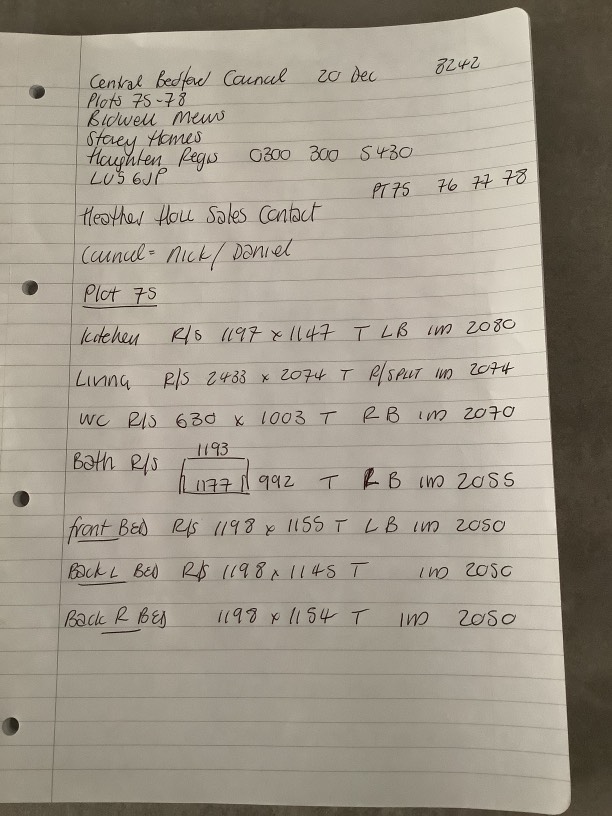 Central Bedford Council 20 Dec 8242
Plots 75-78
Bidwell Mews
Storey Homes
Houghten Regis 0300 300 5430
LU5 6JP
PT75 76 77 78
Heather Sales Contact
Council = Nick / Daniel
Plot 75
Kitchen R/S 1197 x 1147 T LB IM 2080
Living R/S 2433 x 2074 T R/SPLIT IM 2074
WC R/S 630 x 1003 T RB IM 2070
1193
Bath R/S 1177 992 T LB IM 2055
front BED R/S 1198 x 1155 T LB IM 2050
Back L BED R/S 1198 x 1145 T IM 2050
Back R BED 1198 x 1154 T IM 2050